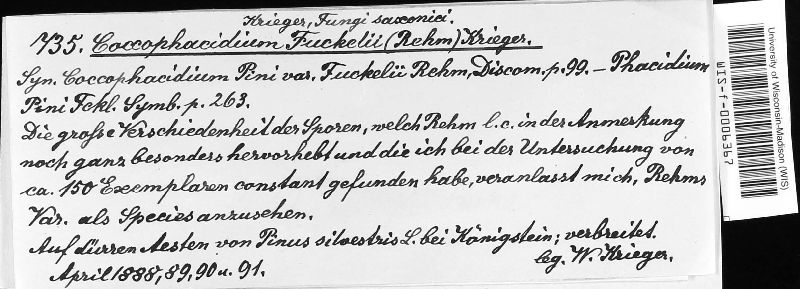 Krieger, Fungi saxonici.
735. Coccophacidium Fuckelii (Rehm) Krieger.
Syn. Coccophacidium Pini var. Fuckelii Rehm, Discom. p. 99. – Phacidium
Pini Fckl. Symb. p. 263.
Die grosse Verschiedenheit der Sporen, welch Rehm l. c. in der Anmerkung
noch ganz besonders hervorhebt und die ich bei der Untersuchung von
ca. 150 Exemplaren constant gefunden habe, veranlasst mich, Rehms
Var. als Species anzusehen.
Auf dürren Aesten von Pinus silvestris L. bei Königstein; verbreitet.
April 1888, 89, 90 u. 91.
leg. W. Krieger.
University of Wisconsin-Madison (WIS)
WIS-f-0006367